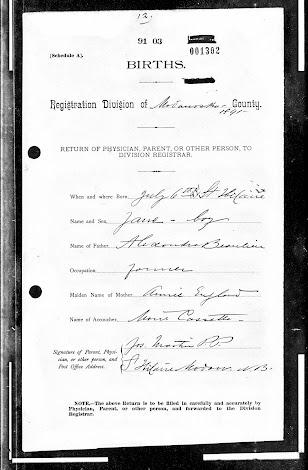 12.
91 03
001302
[Schedule A].
BIRTHS.
Registration Division of Madawaska County.
1891
RETURN OF PHYSICIAN, PARENT, OR OTHER PERSON, TO
DIVISION REGISTRAR.
When and where Born July 6th St Hilaire
Name and Sex - boy
Name of Father Alexandre Beaulieu
Occupation farmer
Maiden Name of Mother Annie
Name of Accoucher
Signature of Parent, Physi-
cian, or other person, and
Post Office Address.
Jos. Martin
St Hilaire N.B.
NOTE.—The above Return is to be filled in carefully and accurately by
Physician, Parent, or other person, and forwarded to the Division
Registrar.